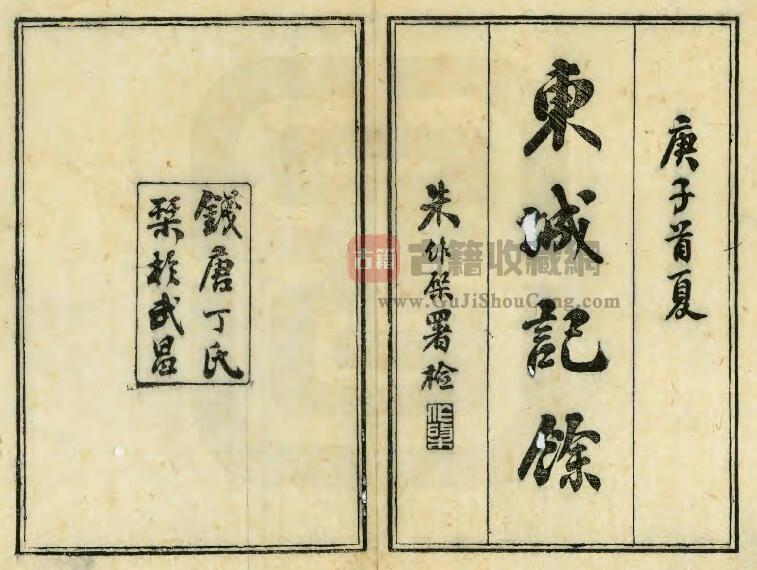 庚子首夏
東城記餘
朱作榮署檢
錢唐丁氏
栞於武昌
古籍
古籍收藏網
www.GuJiShouCang.com